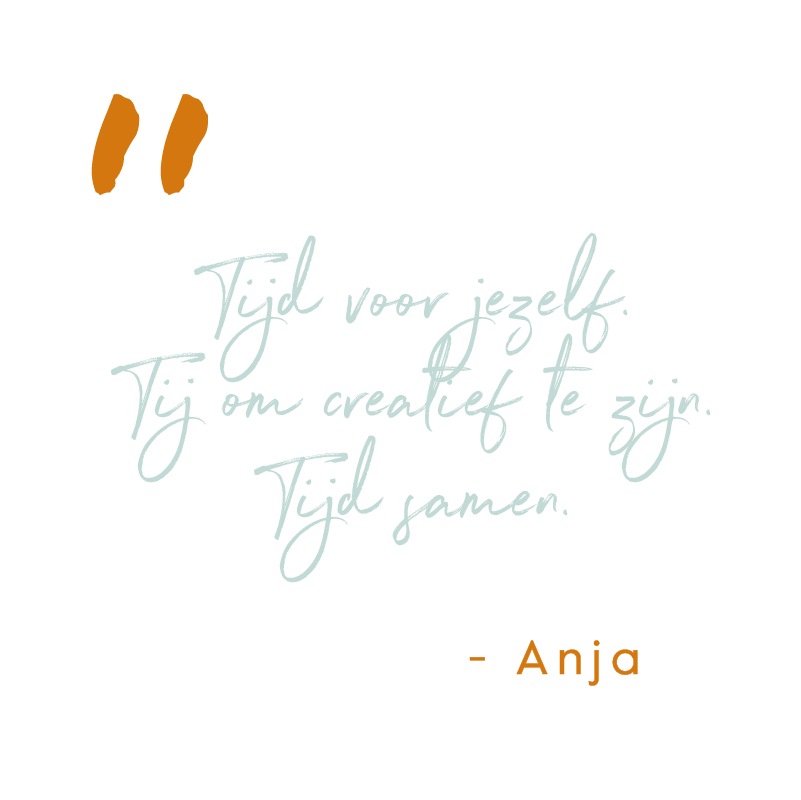 "
Tijd voor jezelf.
Tij om creatief te zijn.
Tijd samen.
- Anja